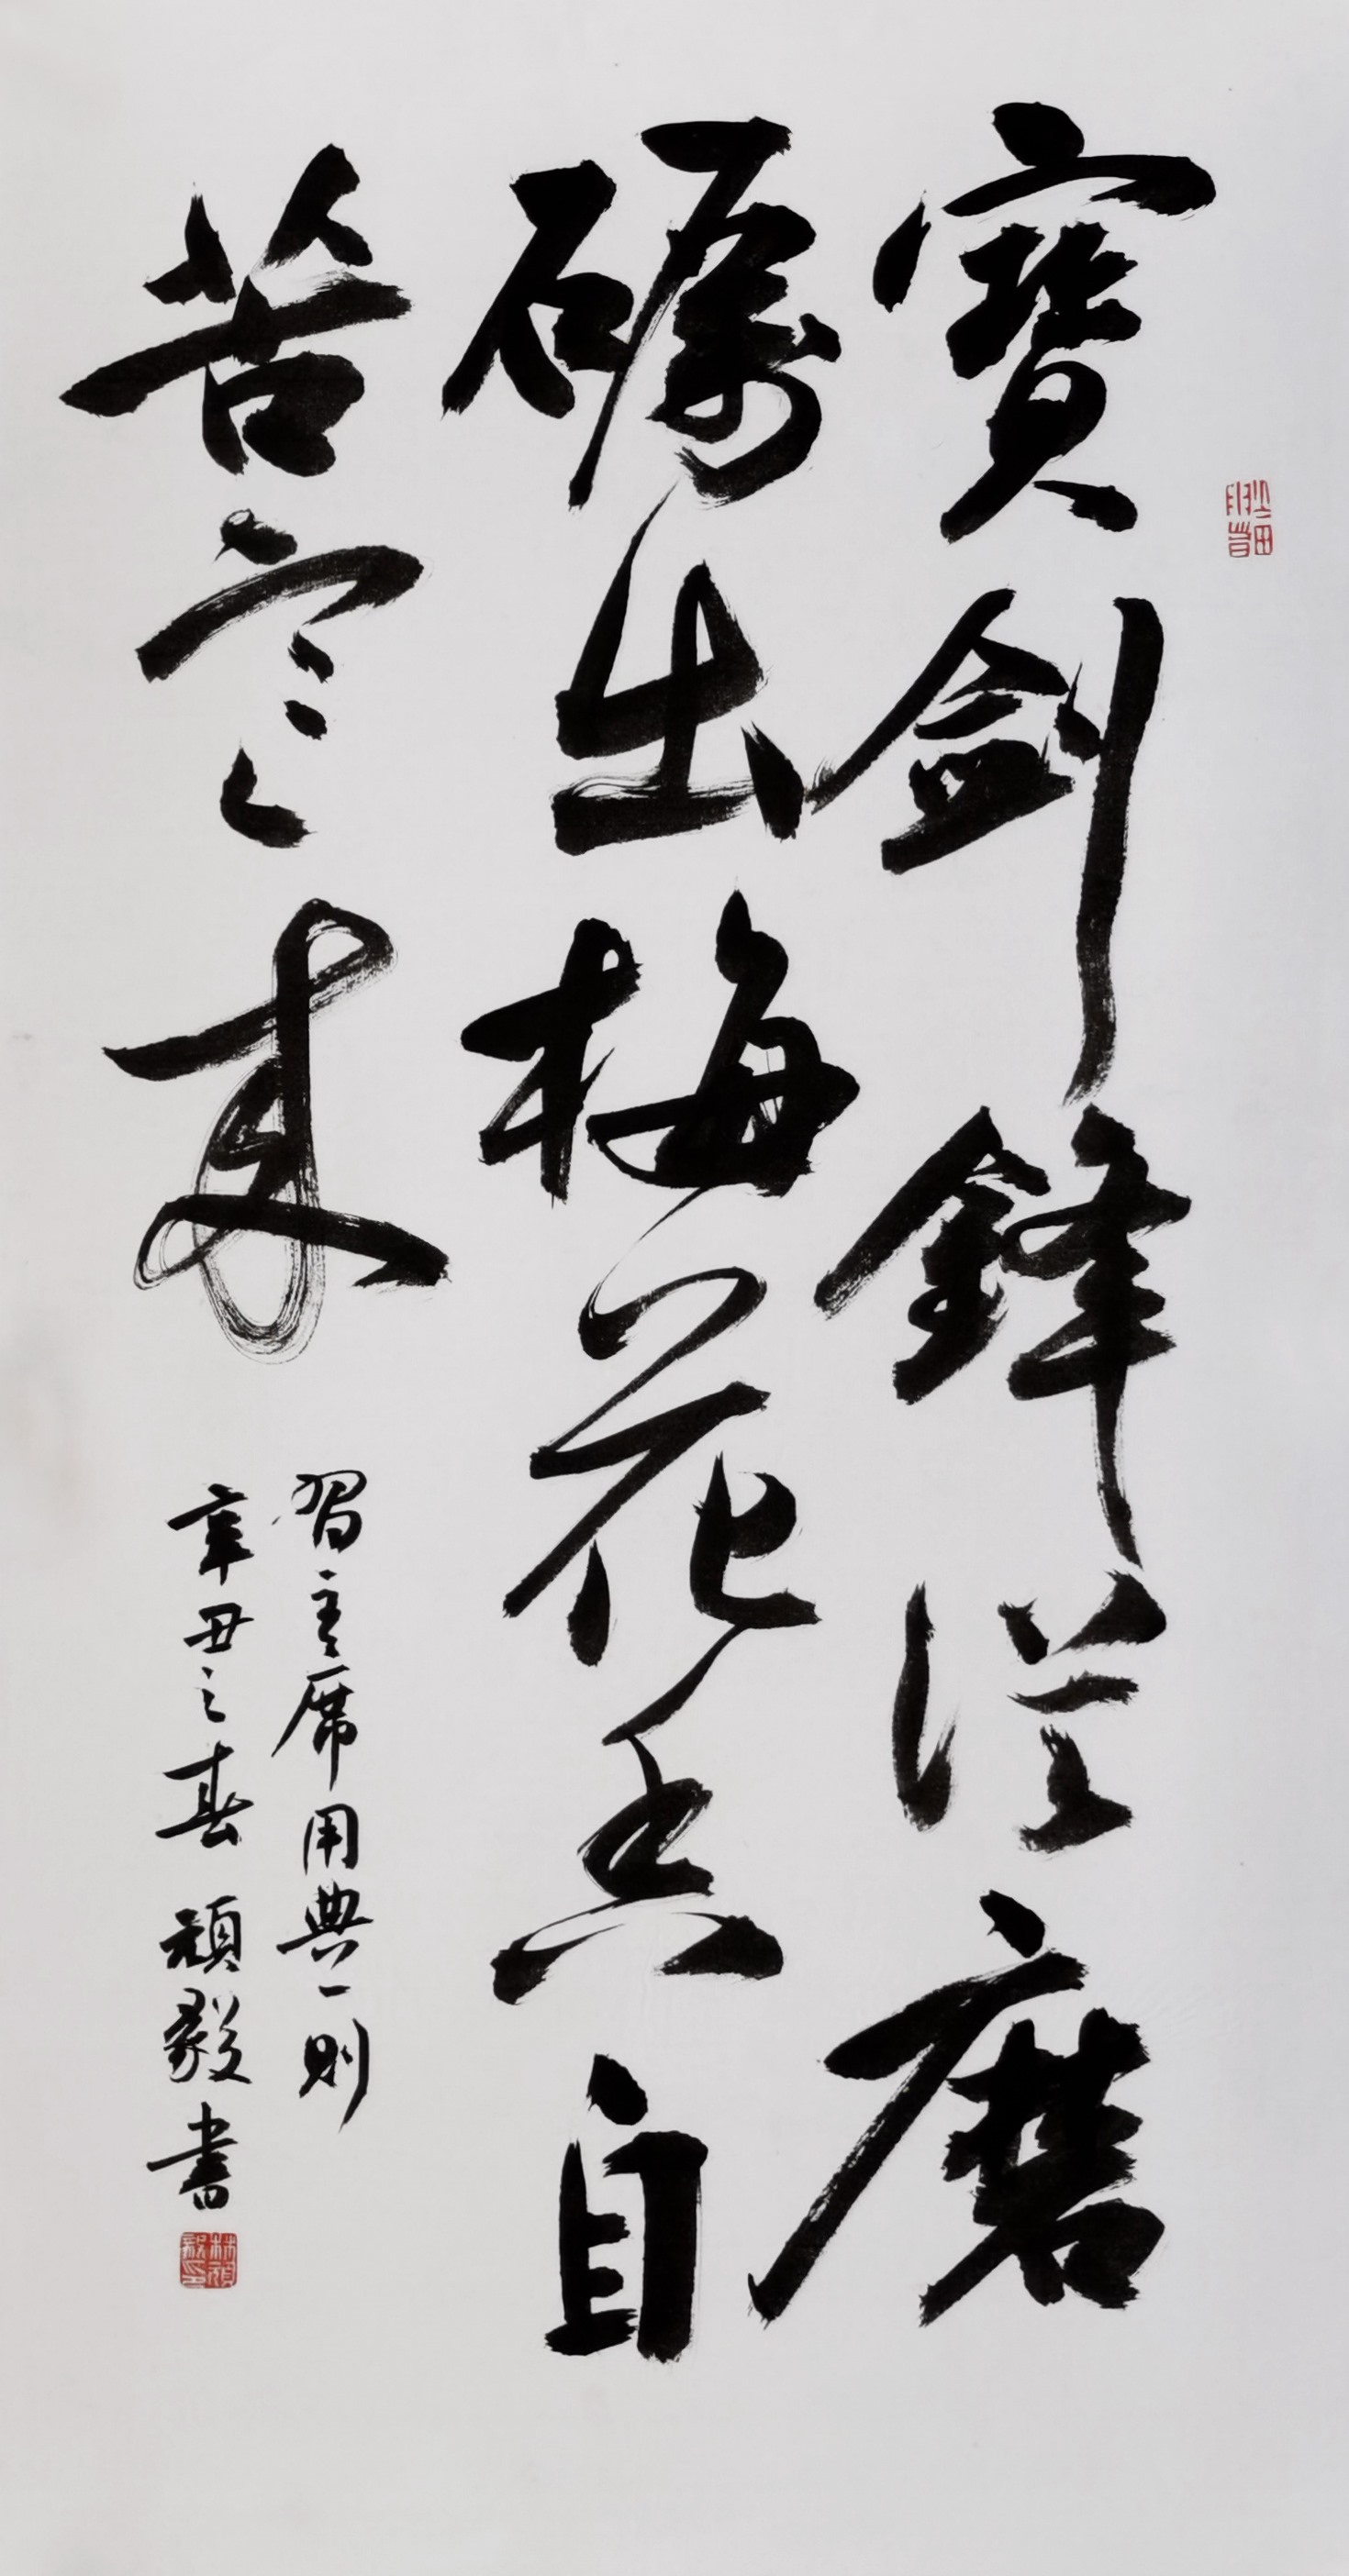 寶劍鋒從磨
礪出梅花香自
苦寒来
習主席用典一則
辛丑之春 頑毅書